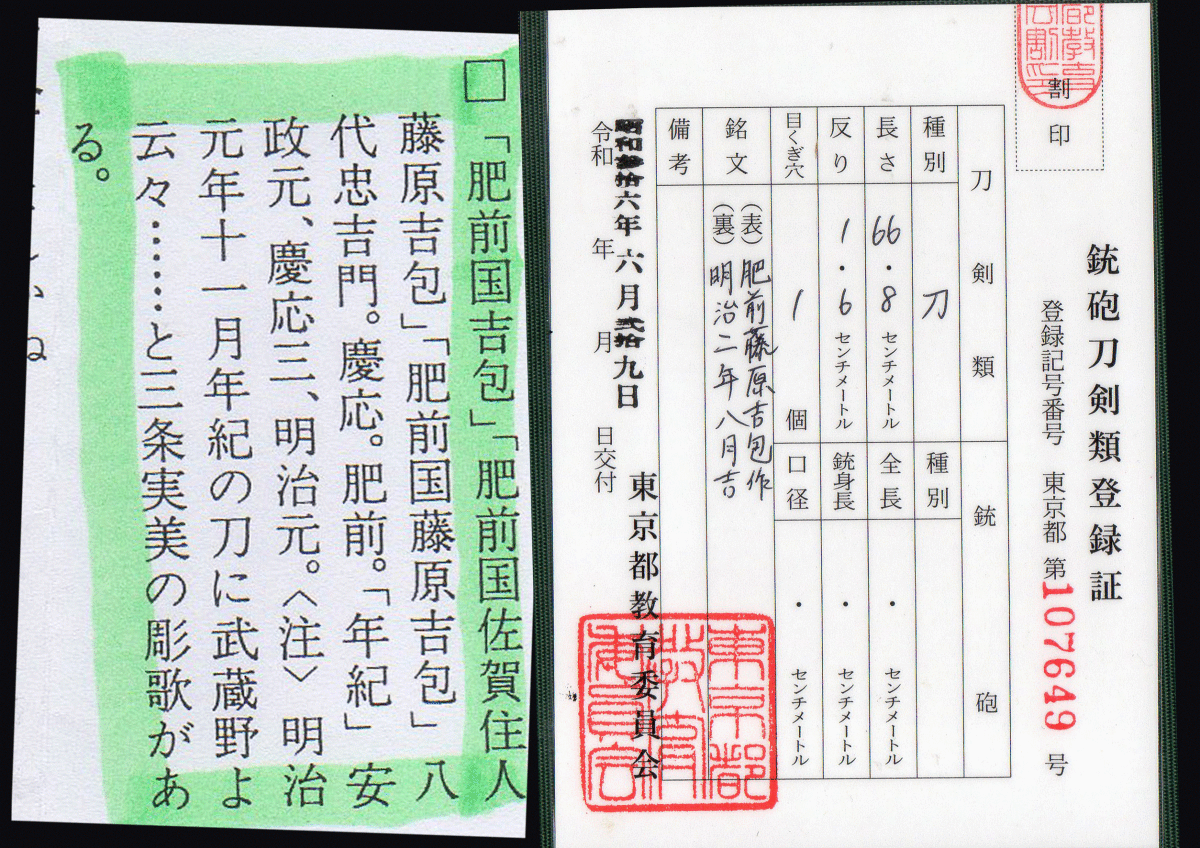 □「肥前国吉包」「肥前国佐賀住人
藤原吉包」「肥前国藤原吉包」八
代忠吉門。慶応。肥前。「年紀」安
政元、慶応三、明治元。〈注〉明治
元年十一月年紀の刀に武蔵野よ
云々……と三条実美の彫歌があ
る。
割印
銃砲刀剣類登録証
登録記号番号 東京都 第107649号
刀剣類
種別 刀
長さ 66.8 センチメートル
反り 1.6 センチメートル
目くぎ穴 1 個
銘文
(表)肥前藤原吉包作
(裏)明治二年八月吉
備考
銃砲
種別
全長 ・ センチメートル
銃身長 ・ センチメートル
口径 ・ センチメートル
昭和参拾六年六月弐拾九日
令和 年 月 日交付
東京都教育委員会
東京都
教育
委員会